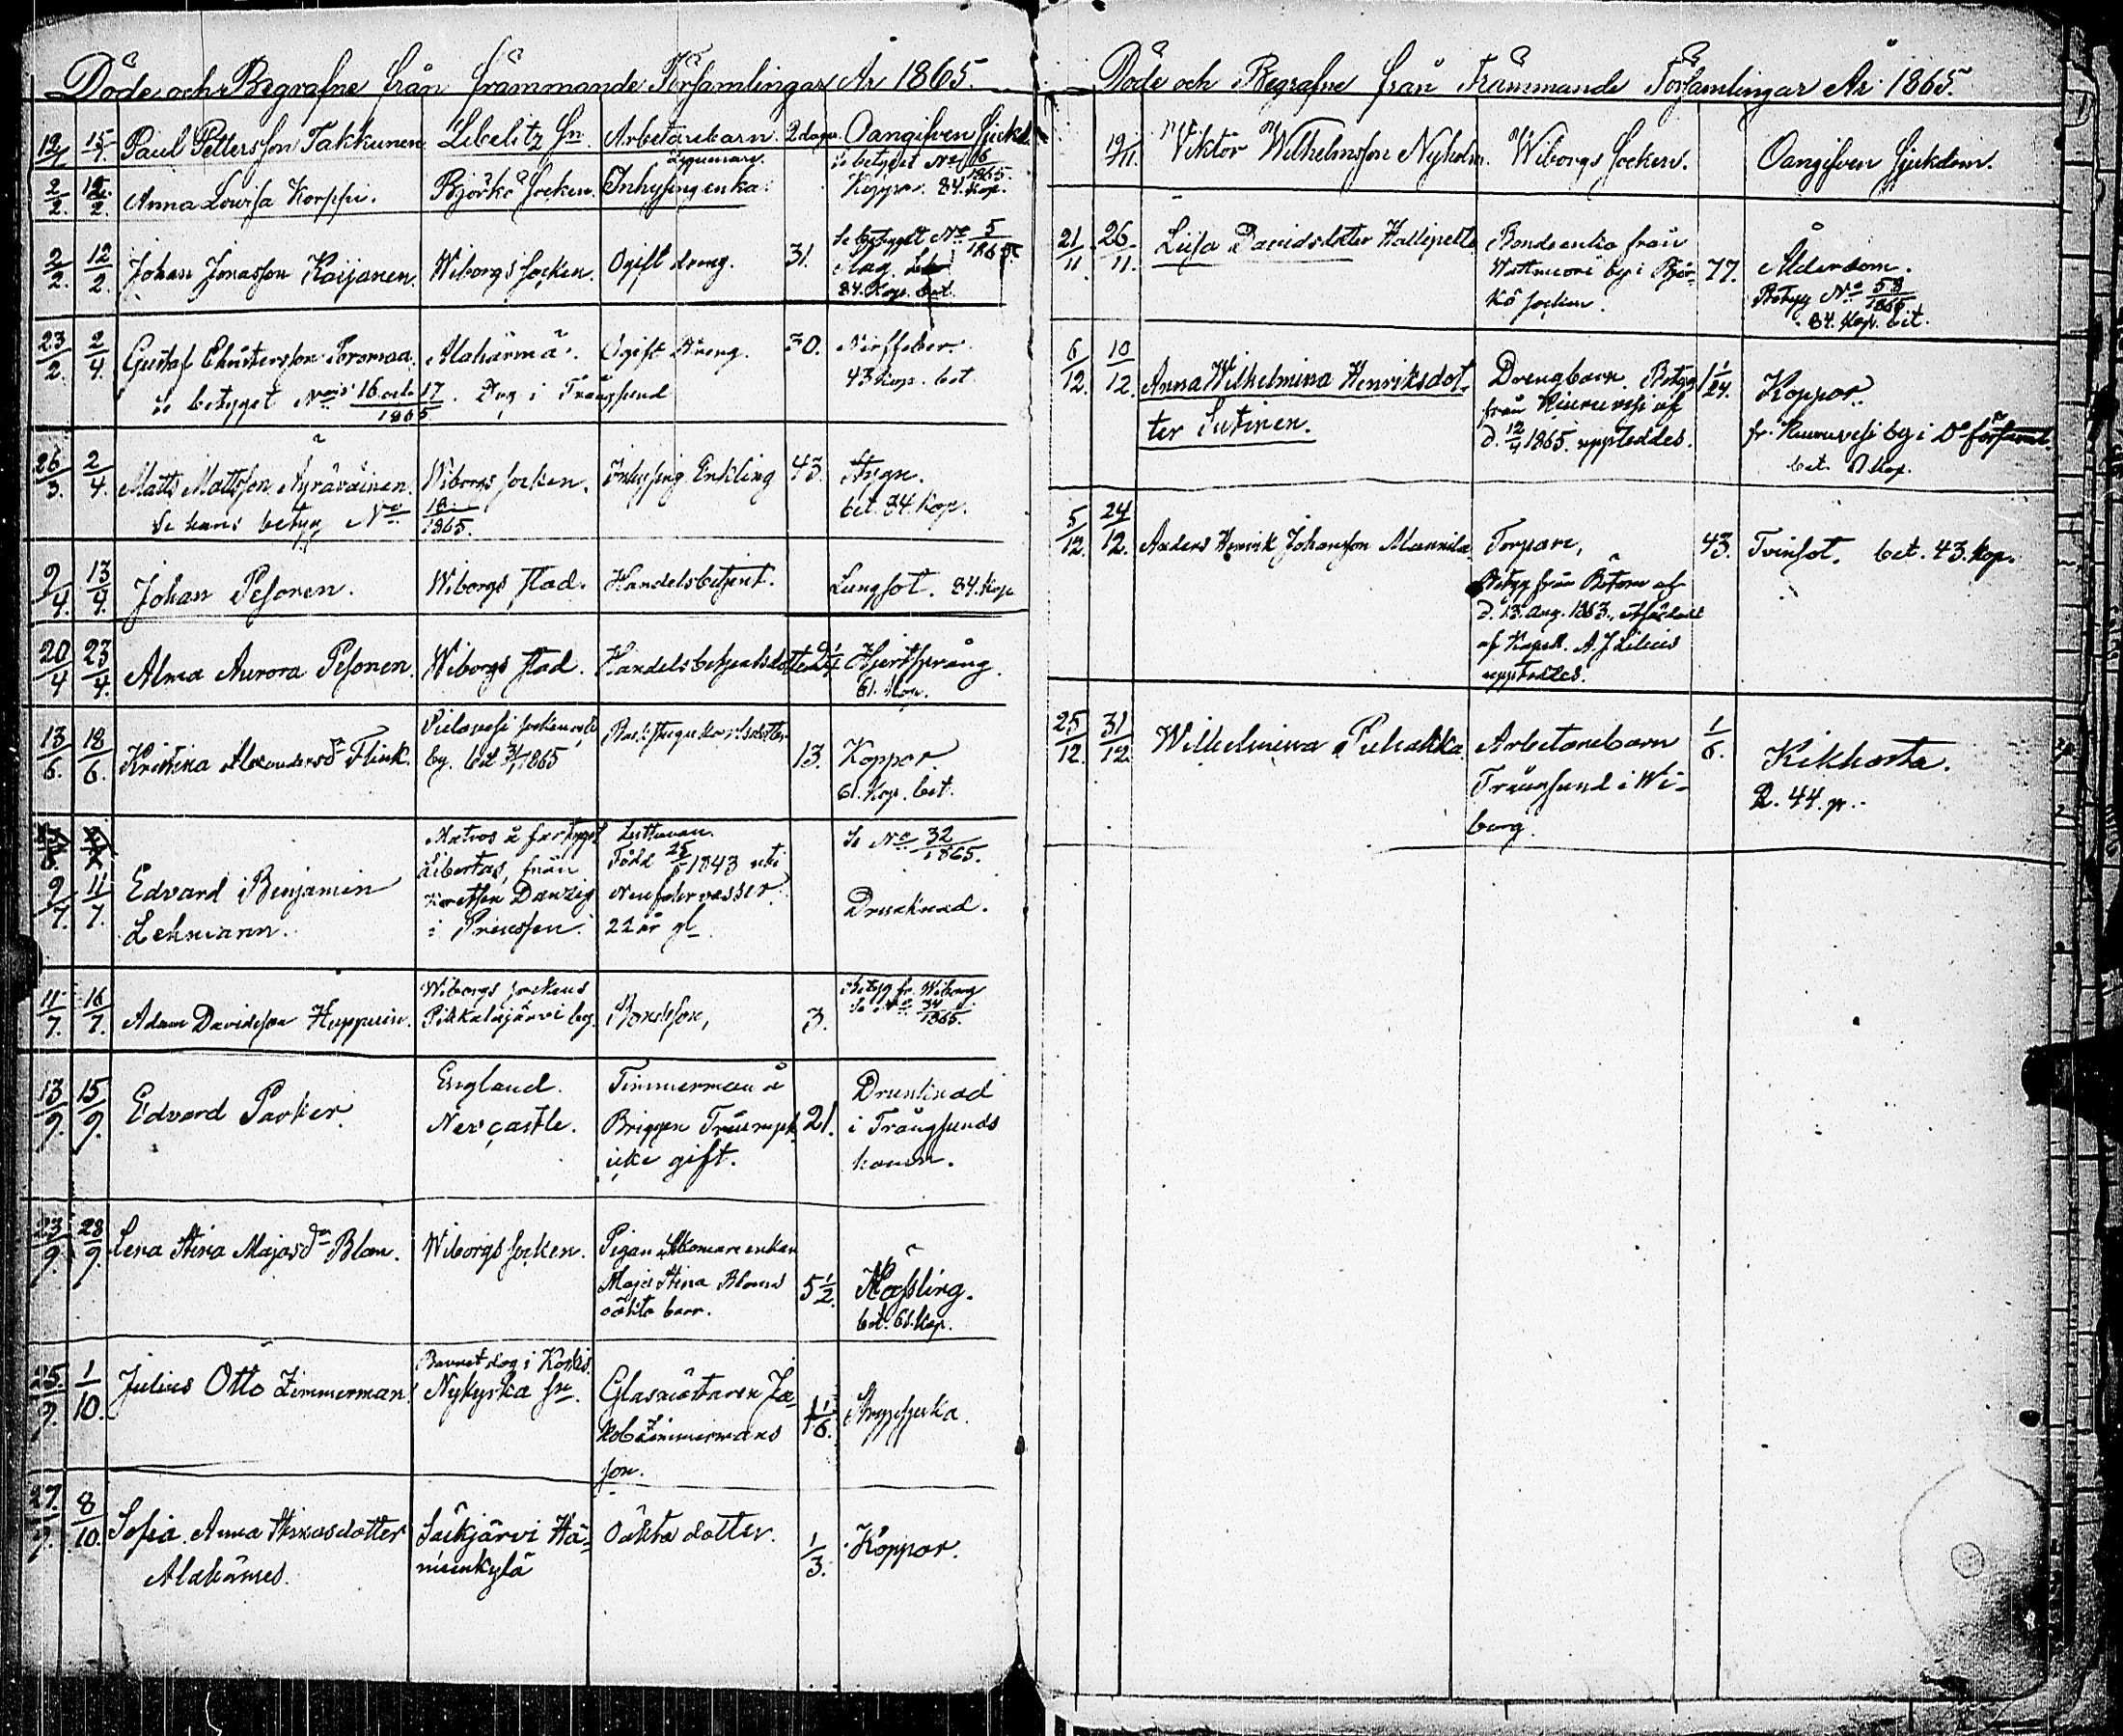 Döde och Begrafne från främmande Församlingar År 1865.
12/1 15/1 Paul Pettersson Takkunen Libelitz Sn Arbetarebarn 2 dagar Oangifven Sjukd.
2/2 12/2 Anna Lovisa Korppi. Björkö Socken. Inhysing enka. Koppor 84. kop.
Se betyget No 6/1865.
2/2 12/2 Johan Jonasson Kaijanen Wiborgs socken. Ogift dreng. 31.
Se betyget No 5/1865.
84. Kop. bet.
23/2 2/4 Gustaf Alahärmä. Ogift dreng. 30. Nerffeber.
43 kop. bet.
Se betyget 16 och 17/1865. Dog i Trångsund
26/3 2/4 Matts Mattsson Wiborgs socken. Inhysing Enkling 43. Stygn.
Se hans betyg No 18/1865. bet. 84. kop.
9/4 13/4 Johan Pesonen. Wiborgs stad. Handelsbetjent. Lungsot. 84. kop
20/4 23/4 Alma Aurora Pesonen. Wiborgs stad. Handelsbetjentsdotter Hjertsprång.
61. kop.
13/6 18/6 Kristina Alexandersdr Flink. Pielavesi
by. bet 3/1 1865 13. Koppor.
61. kop. bet.
9/7 11/7 Edvard Benjamin
Lehmann.
Matros å fartyget
Libertas, från
Danzig
i Preussen.
Lutheran.
Född 25/5 1843 uti
Neufahrwasser.
22 år gl.
Se No 32/1865.
Drunknad.
11/7 16/7 Adam Davidsson Huppunin.
Wiborgs sockens
Pilkalajärvi by. Bondeson, 3.
Betyg fr. Wiborg
Se No 34/1865.
13/9 15/9 Edvard Parker.
England.
Newcastle.
Timmerman å
Briggen Triumph
icke gift.
21.
Drunknad
i Trångsunds
hamn.
23/9 28/9 Lena Stina Majasdr Blom. Wiborgs socken.
Pigan
Maja Stina Bloms
oäkta barn.
5 1/2. Mässling.
bet. 61. kop.
25/9 1/10 Julius Otto Zimmerman
Barnet dog i Koskis.
Nykyrka sn.
Glasmästaren Ja-
kob Zimmermans
son.
1 1/6. Strypsjuka.
27/9 8/10 Sofia Anna
Säkjärvi Hä-
meenkylä
Oäkta dotter. 1/3. Koppor.
Döde och Begrafne från Främmande Församlingar År 1865.
19/11. Viktor Wilhelmsson Nyholm. Wiborgs socken. Oangifven sjukdom.
21/11 26/11. Liisa Davidsdotter
Bondeenka från
by i Björ-
kö socken.
77. Ålderdom.
Betyg No 58/1865
84. kop. bet.
6/12 10/12. Anna Wilhelmina Henriksdot-
ter Sutinen.
Drengbarn. Betyg
från Kiuruvesi af
d. 12/4 1865. uppteddes.
1 1/24. Koppor.
fr. Kiuruvesi by i Do församl.
bet. kop.
5/12. 24/12. Anders Henrik Johansson Mannila
Torpare,
Betyg från
d. 13. Aug. 1863,
af Kapell. A. J. Lilius
uppteddes.
43. Tvinsot. bet. 43. kop.
25/12. 31/12. Wilhelmina Puhakka.
Arbetarebarn
Trångsund i Wi-
borg.
1/6. Kikhosta.
R. 44. p.